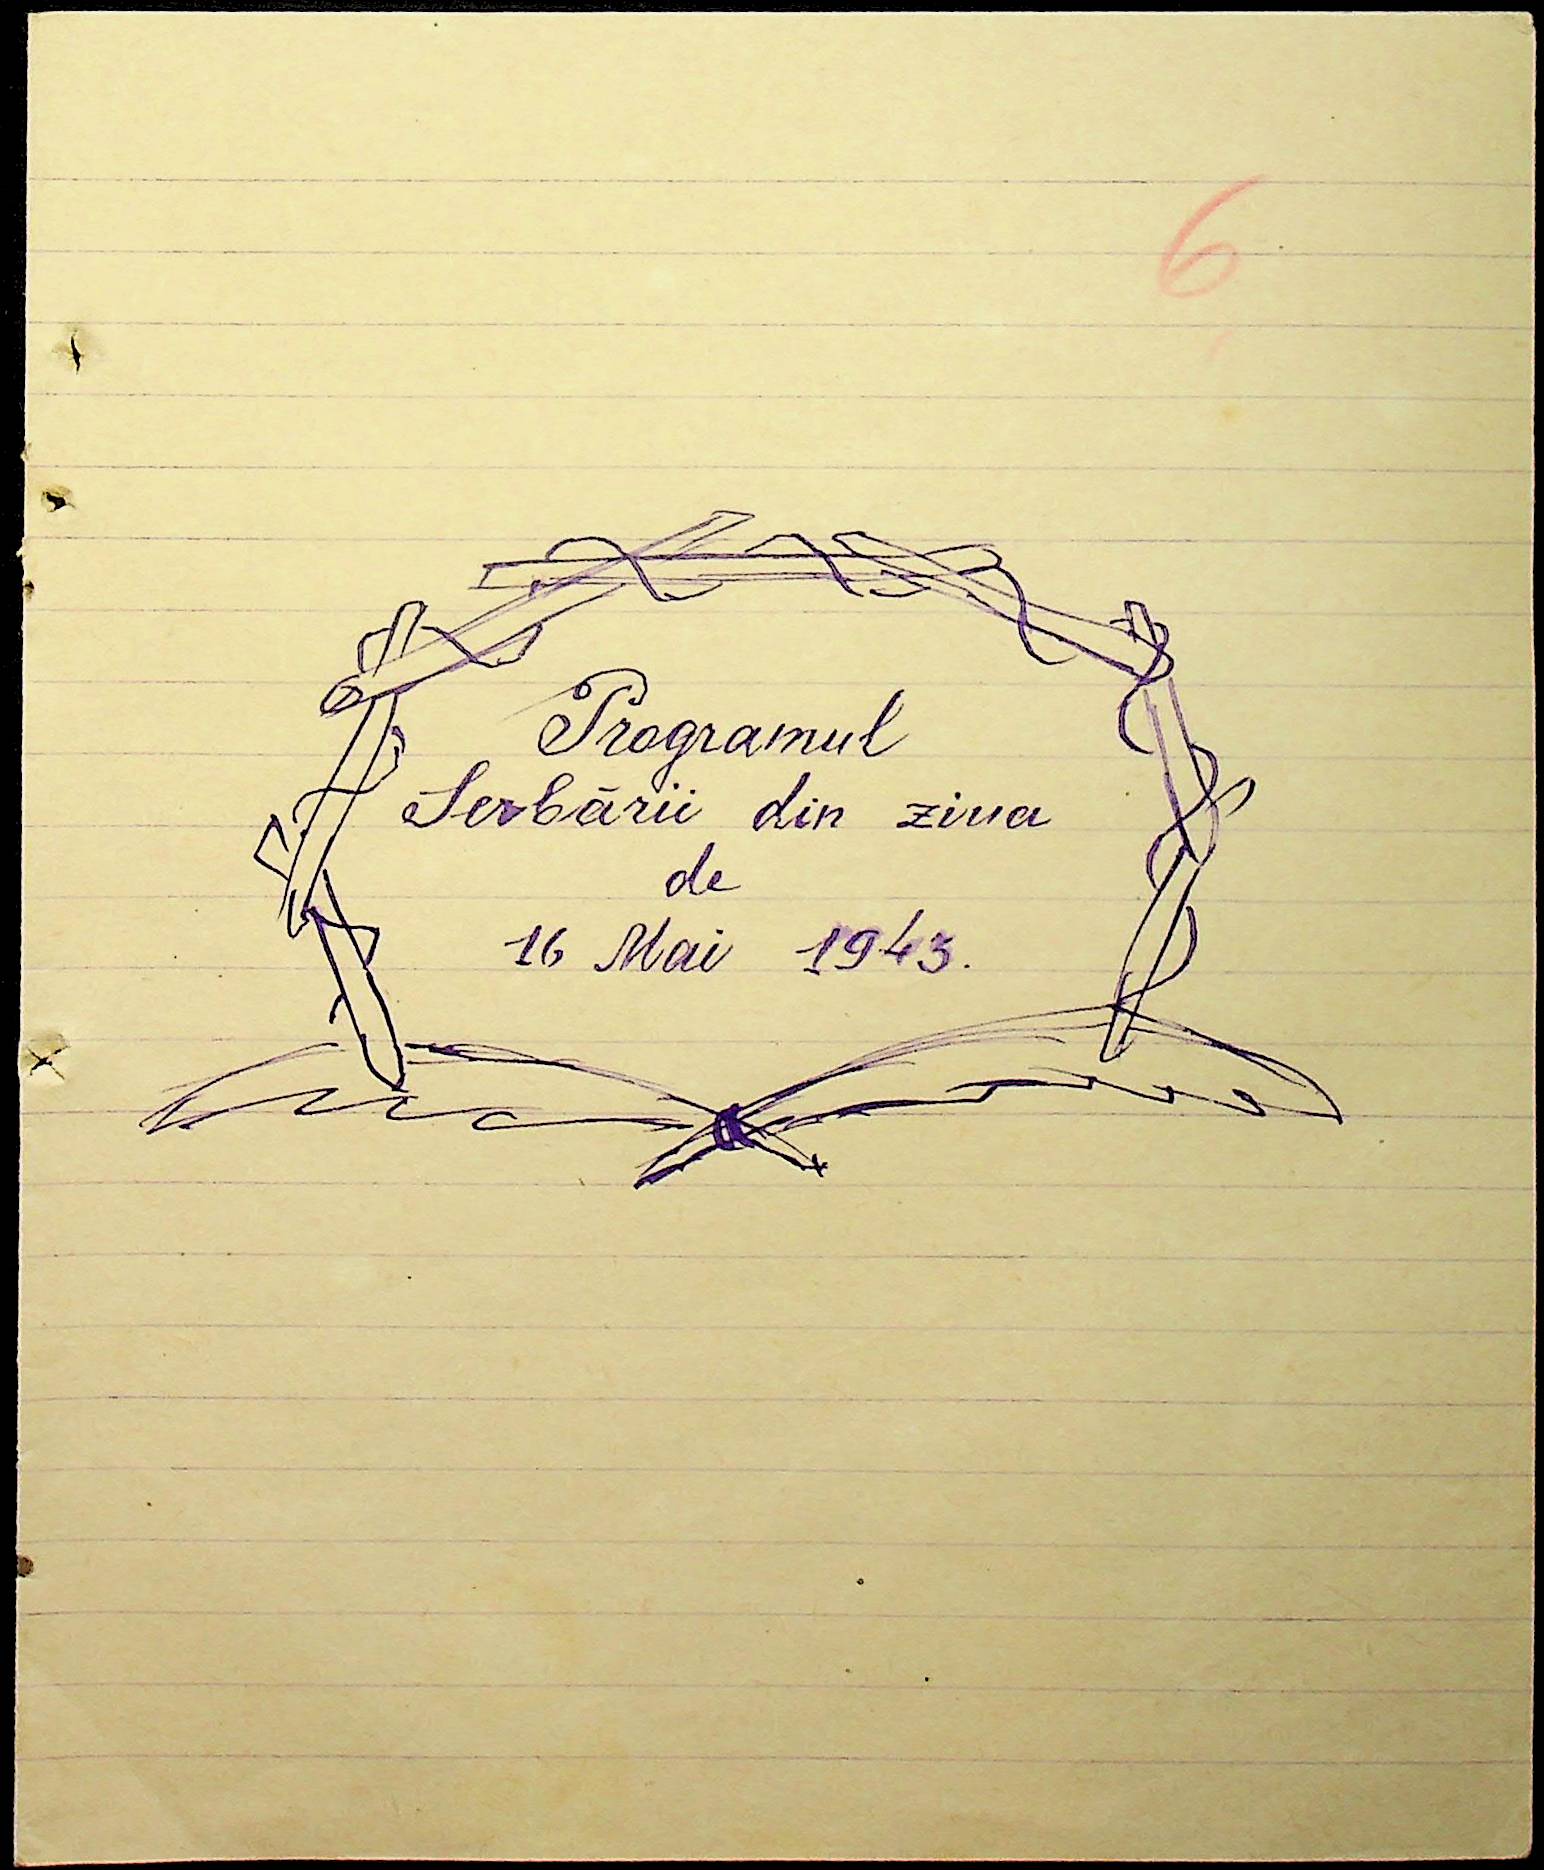 6
Programul
Serbării din ziua
de
16 Mai 1943.